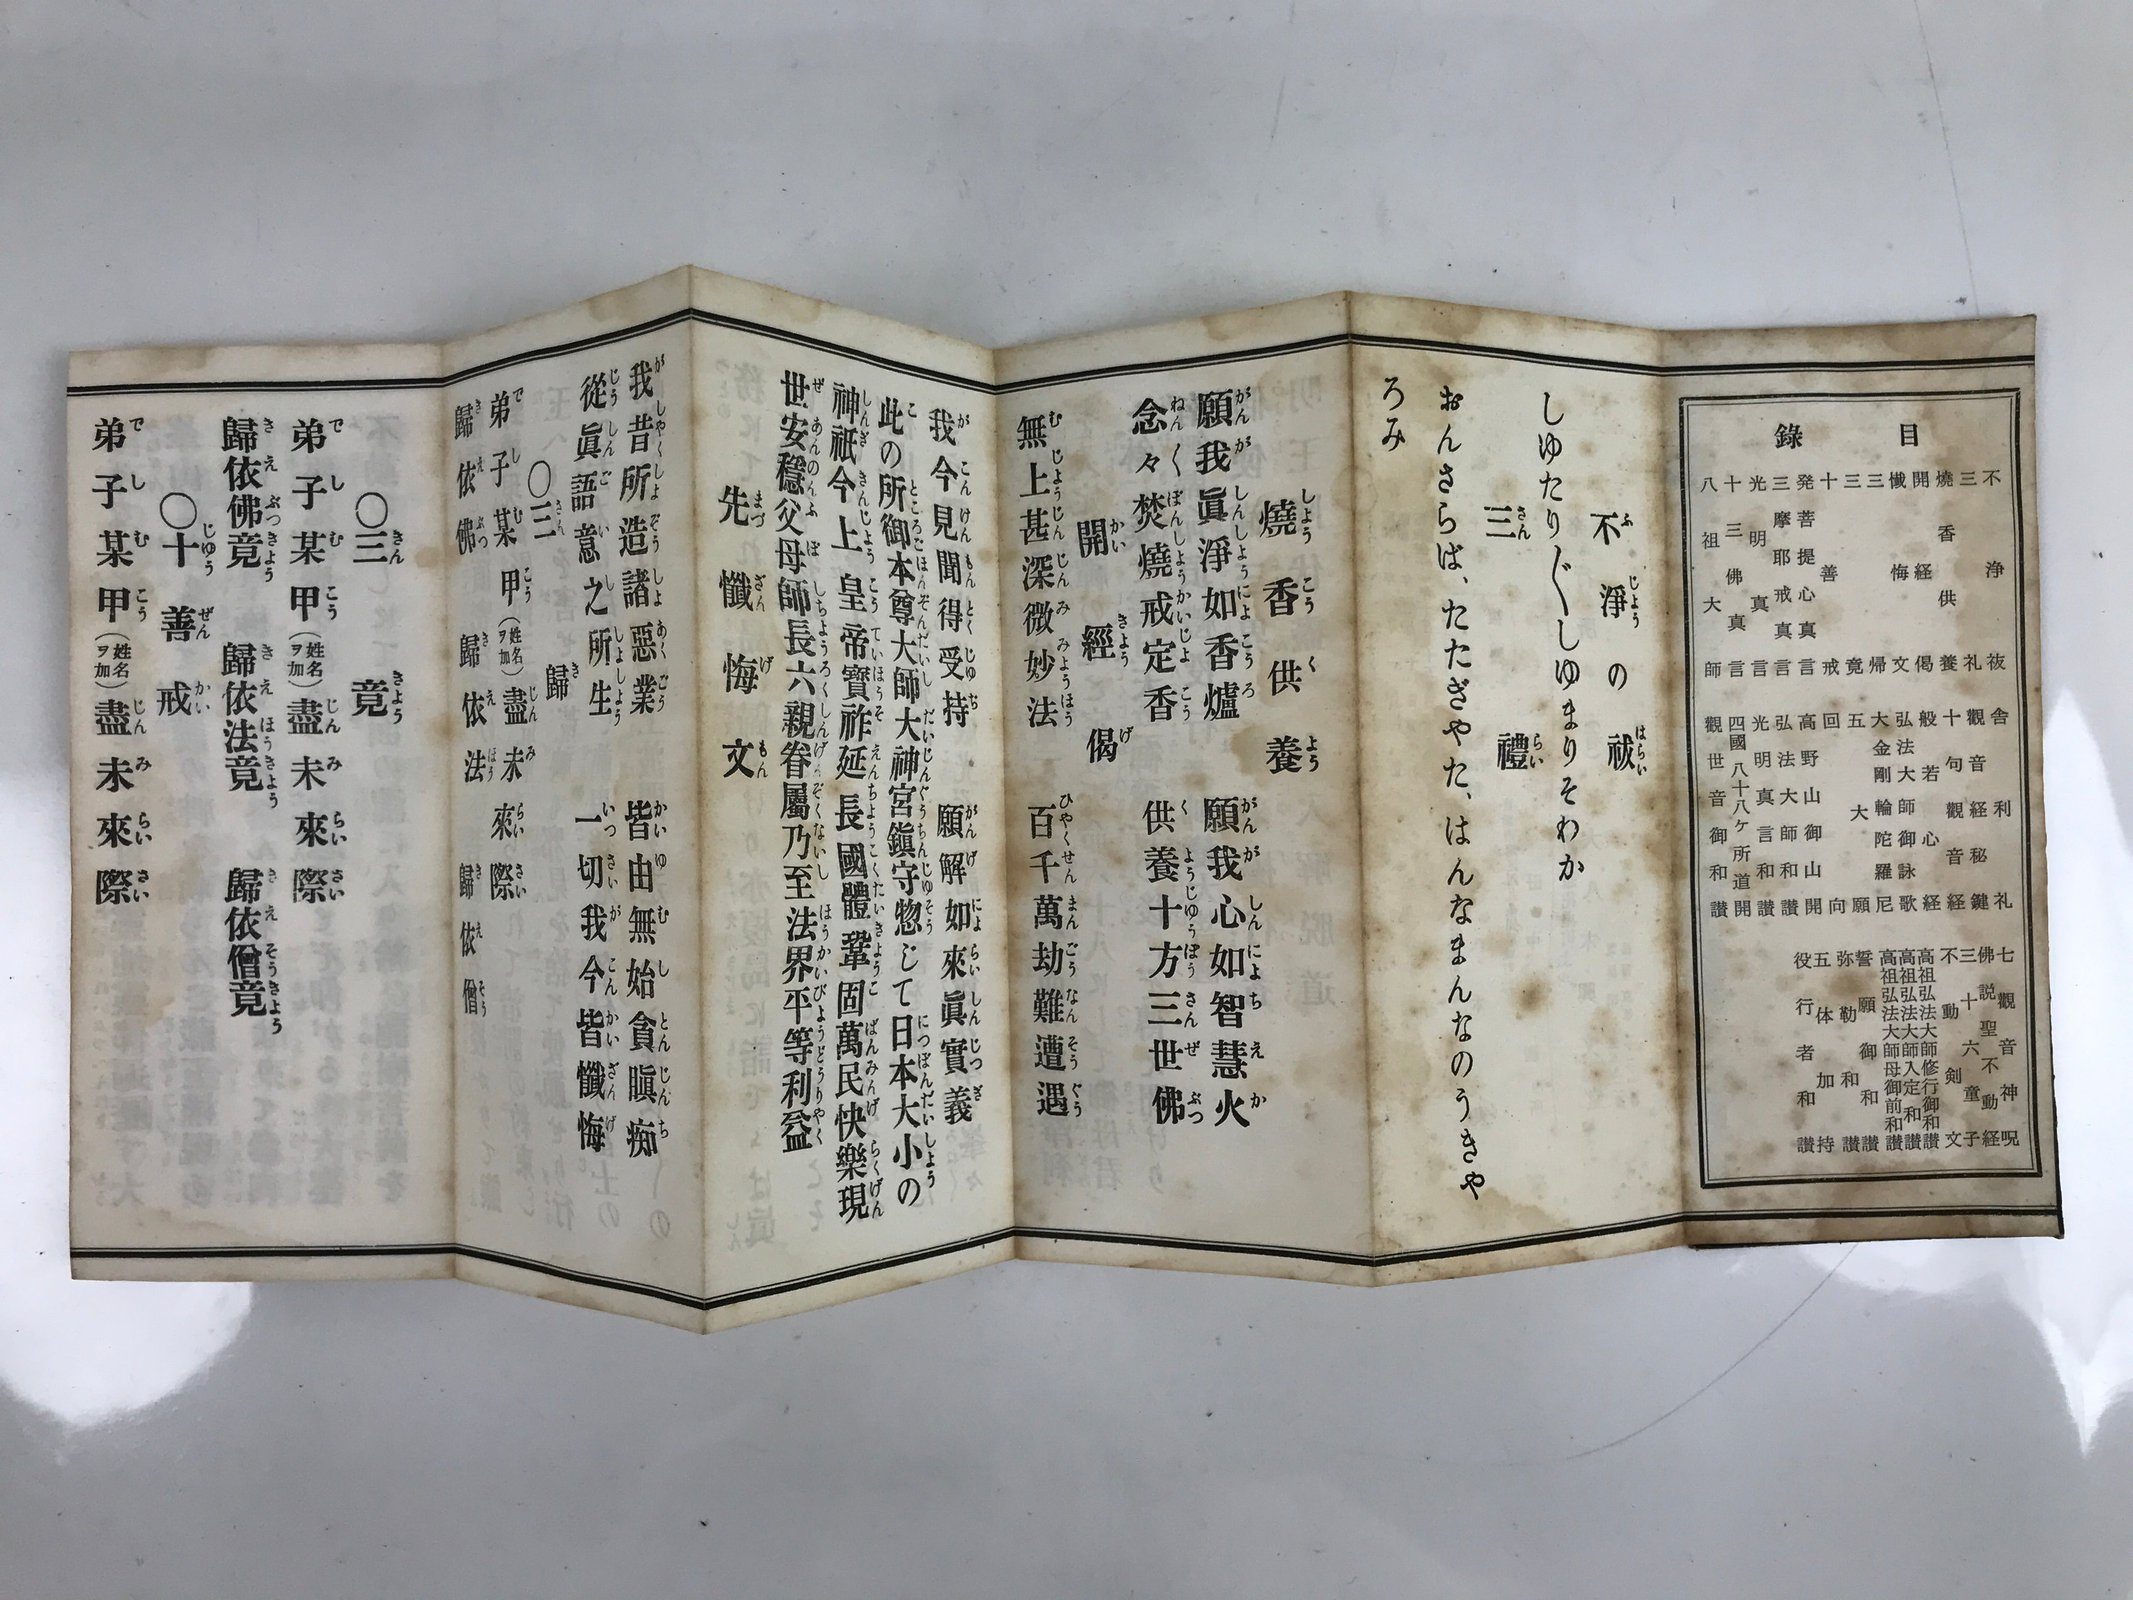 目録
不浄祓
三礼
燒香供養
開経偈
懺悔文
三帰
三竟
十善戒
発菩提心真言
三摩耶戒真言
光明真言
十三佛真言
八祖大師
舎利礼
観音経秘鍵
十句観音経
般若心経
弘法大師御詠歌
大金剛輪陀羅尼
五大願
回向
高野山御山開
弘法大師和讃
光明真言和讃
四國八十八ヶ所道開
觀世音御和讃
七観音神呪
佛説聖不動経
三十六童子
不動剣文
高祖弘法大師修行御和讃
高祖弘法大師入定和讃
高祖弘法大師母御前和讃
誓願御和讃
弥勒和讃
五体加持
役行者和讃
不淨の祓
しゆたり〱しゆまりそわか
三禮
おんさらば、たたぎやた、はんなまんなのうきや
ろみ
燒香供養
願我眞淨如香爐　願我心如智慧火
念々焚燒戒定香　供養十方三世佛
開經偈
無上甚深微妙法　百千萬劫難遭遇
我今見聞得受持　願解如來眞實義
此の所御本尊大師大神宮鎭守惣じて日本大小の
神祇今上皇帝寶祚延長國體鞏固萬民快樂現
世安穩父母師長六親眷屬乃至法界平等利益
先懺悔文
我昔所造諸惡業　皆由無始貪瞋痴
從眞語意之所生　一切我今皆懺悔
〇三歸
弟子某甲（姓名ヲ加）盡未來際
歸依佛　歸依法　歸依僧
〇三竟
弟子某甲（姓名ヲ加）盡未來際
歸依佛竟　歸依法竟　歸依僧竟
〇十善戒
弟子某甲（姓名ヲ加）盡未來際